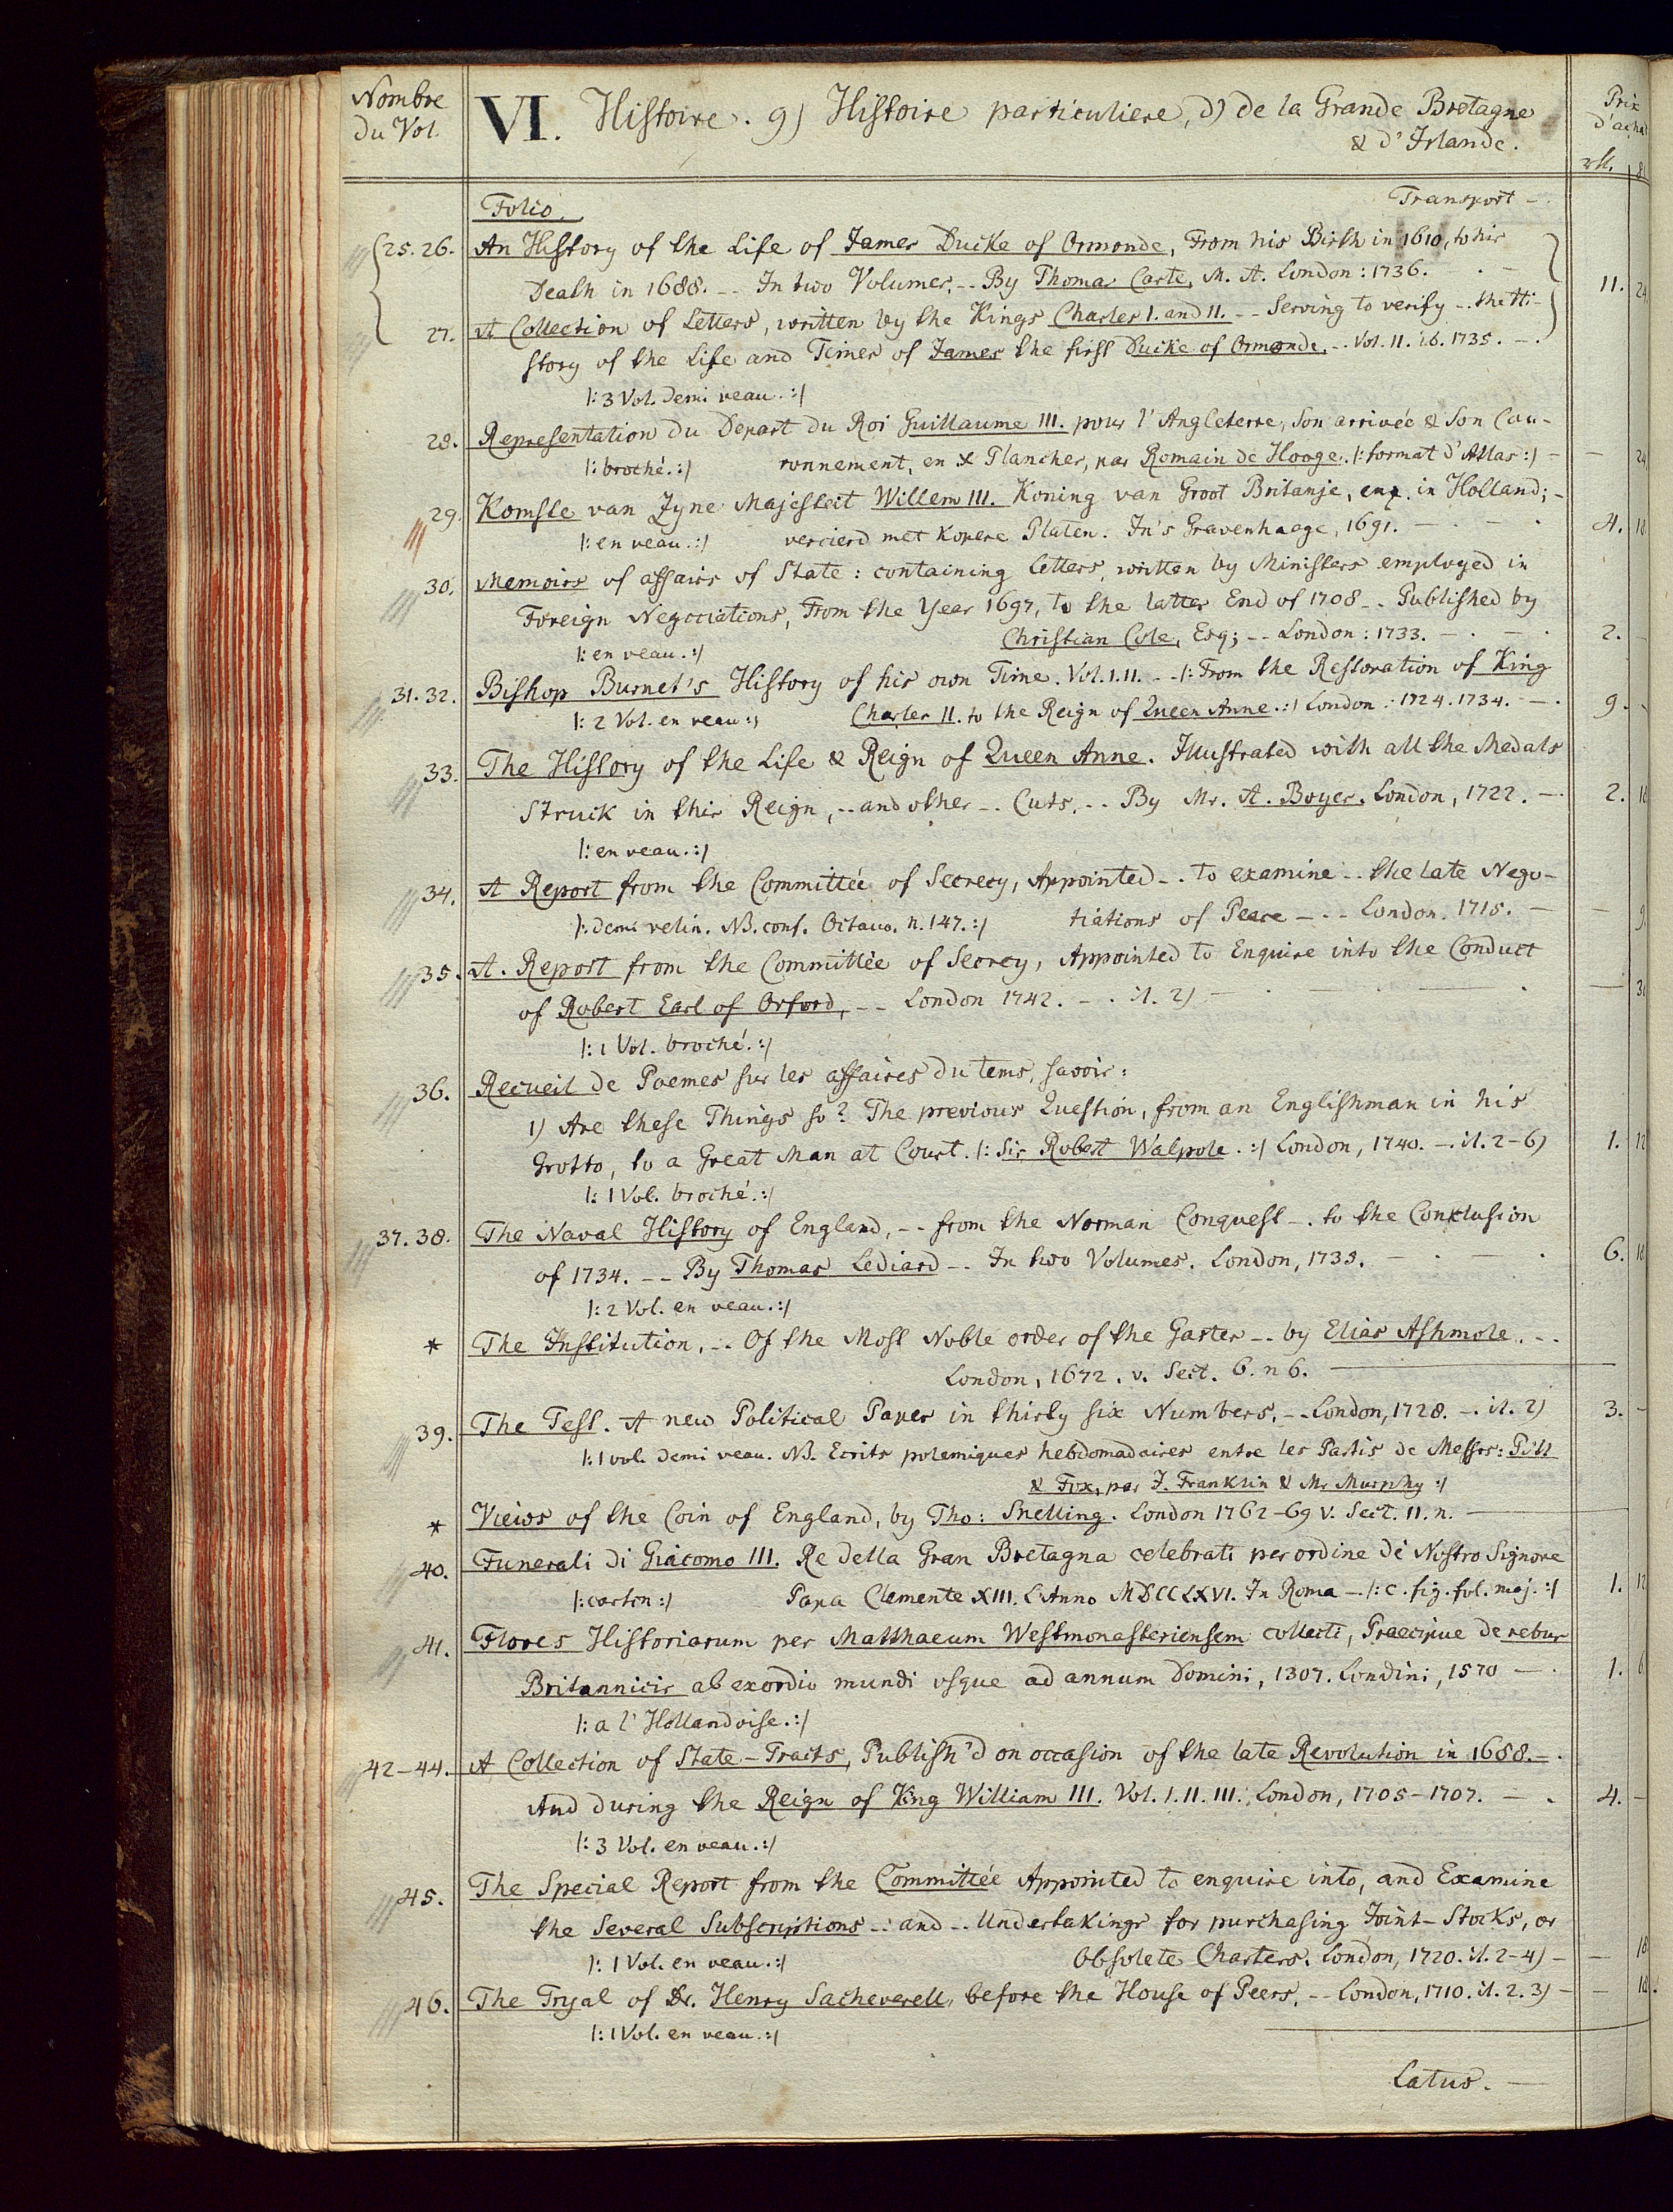 Nombre
du Vol.
VI. Histoire. 9) Histoire particuliere, d) de la Grande Bretagne
& d'Irlande.
Prix
d'achat
Folio. Transport -.
25. 26. An History of the Life of James Ducke of Ormonde, From his Birth in 1610, to his
Death in 1688. -- In two Volumes, -- By Thomas Carte, M. A. London: 1736. 11. 24
27. A Collection of Letters, written by the Kings Charles I. and II. -- Serving to verify -- the Hi-
story of the Life and Times of James the first Ducke of Ormonde. -- Vol. II. ib. 1735. -.
|: 3 Vol. demi veau. :|
28. Representation du Depart du Roi Guillaume III. pour l'Angleterre, Son arrivée & Son Cou-
|: broché. :| ronnement, en x Planches, par Romain de Hooge. |: format d'Atlas :| - - 24
29. Komste van Zyne Majesteit Willem III. Koning van Groot Britanje, enz. in Holland; -
|: en veau. :| vercierd met Kopere Platen. In's Gravenhaege, 1691. 4. 12
30. Memoirs of affairs of State: containing letters, written by Ministers employed in
Foreign Negociations, From the Year 1697, to the latter End of 1708 -- Published by
|: en veau. :| Christian Cole, Esq; -- London: 1733. 2. -
31. 32. Bishop Burnet's History of his own Time. Vol. I. II. -- |: From the Restoration of King
|: 2 Vol. en veau :| Charles II. to the Reign of Queen Anne. :| London: 1724. 1734. -. 9. -
33. The History of the Life & Reign of Queen Anne. Illustrated with all the Medals
Struck in this Reign, -- and other -- Cuts, -- By Mr. A. Boyer. London, 1722. - 2.
|: en veau. :|
34. A Report from the Committée of Secrecy, Appointed -. to examine -- the late Nego-
|: demi velin. NB. conf. Octavo. n. 147. :| tiations of Peace --- London. 1715. - - 9
35. A. Report from the Committée of Secrey, Appointed to Enquire into the Conduct
of Robert Earl of Orford, -- London 1742. -. it. 2) - 3
|: 1 Vol. broché. :|
36. Recueil de Poemes sur les affaires du tems, savoir:
1) Are these Things so? The previous Question, from an Englishman in his
Grotto, to a Great Man at Court. |: Sir Robert Walpole. :| London, 1740. -. it. 2-6) 1. 12
|: 1 Vol. broché. :|
37. 38. The Naval History of England, -- from the Norman Conquest -. to the Conclusion
of 1734. -- By Thomas Lediard -. In two Volumes. London, 1735. 6.
|: 2 Vol. en veau. :|
* The Institution, -. Of the Most Noble order of the Garter -- by Elias Ashmole. --
London, 1672. v. Sect. 6. n 6.
39. The Test. A new Political Paper in thirty six Numbers. -- London, 1728. -. it. 2) 3. -
|: 1 vol. demi veau. NB. Ecrits polemiques hebdomadaires entre les Partis de Messrs: Pitt
& Fox, par J. Franklin & Mr Murphy :|
* Views of the Coin of England, by Tho: Snelling. London 1762-69 v. Sect. 11. n.
40. Funerali di Giacomo III. Re della Gran Bretagna celebrati per ordine di Nostro Signore
|: carton :| Papa Clemente XIII. L'Anno MDCCLXVI. In Roma -. |: c. fig. fol. maj. :| 1. 12
41. Flores Historiarum per Matthaeum Westmonasteriensem collecti, Praecipue de rebus
Britannicis ab exordio mundi usque ad annum Domini, 1307. Londini, 1570 -. 1. 6
|: a l'Hollandoise. :|
42-44. A Collection of State-Tracts, Publish'd on occasion of the late Revolution in 1688. -.
And during the Reign of King William III. Vol. I. II. III. London, 1705-1707. -. 4. -
|: 3 Vol. en veau. :|
45. The Special Report from the Committée Appointed to enquire into, and Examine
the Several Subscriptions -. and -. Undertakings for purchasing Joint-Stocks, or
|: 1 Vol. en veau. :| Obsolete Charters. London, 1720. it. 2-4) - - 18
46. The Tryal of Dr. Henry Sacheverell, before the House of Peers, -- London, 1710. it. 2. 3) - -
|: 1 Vol. en veau. :|
Latus. -